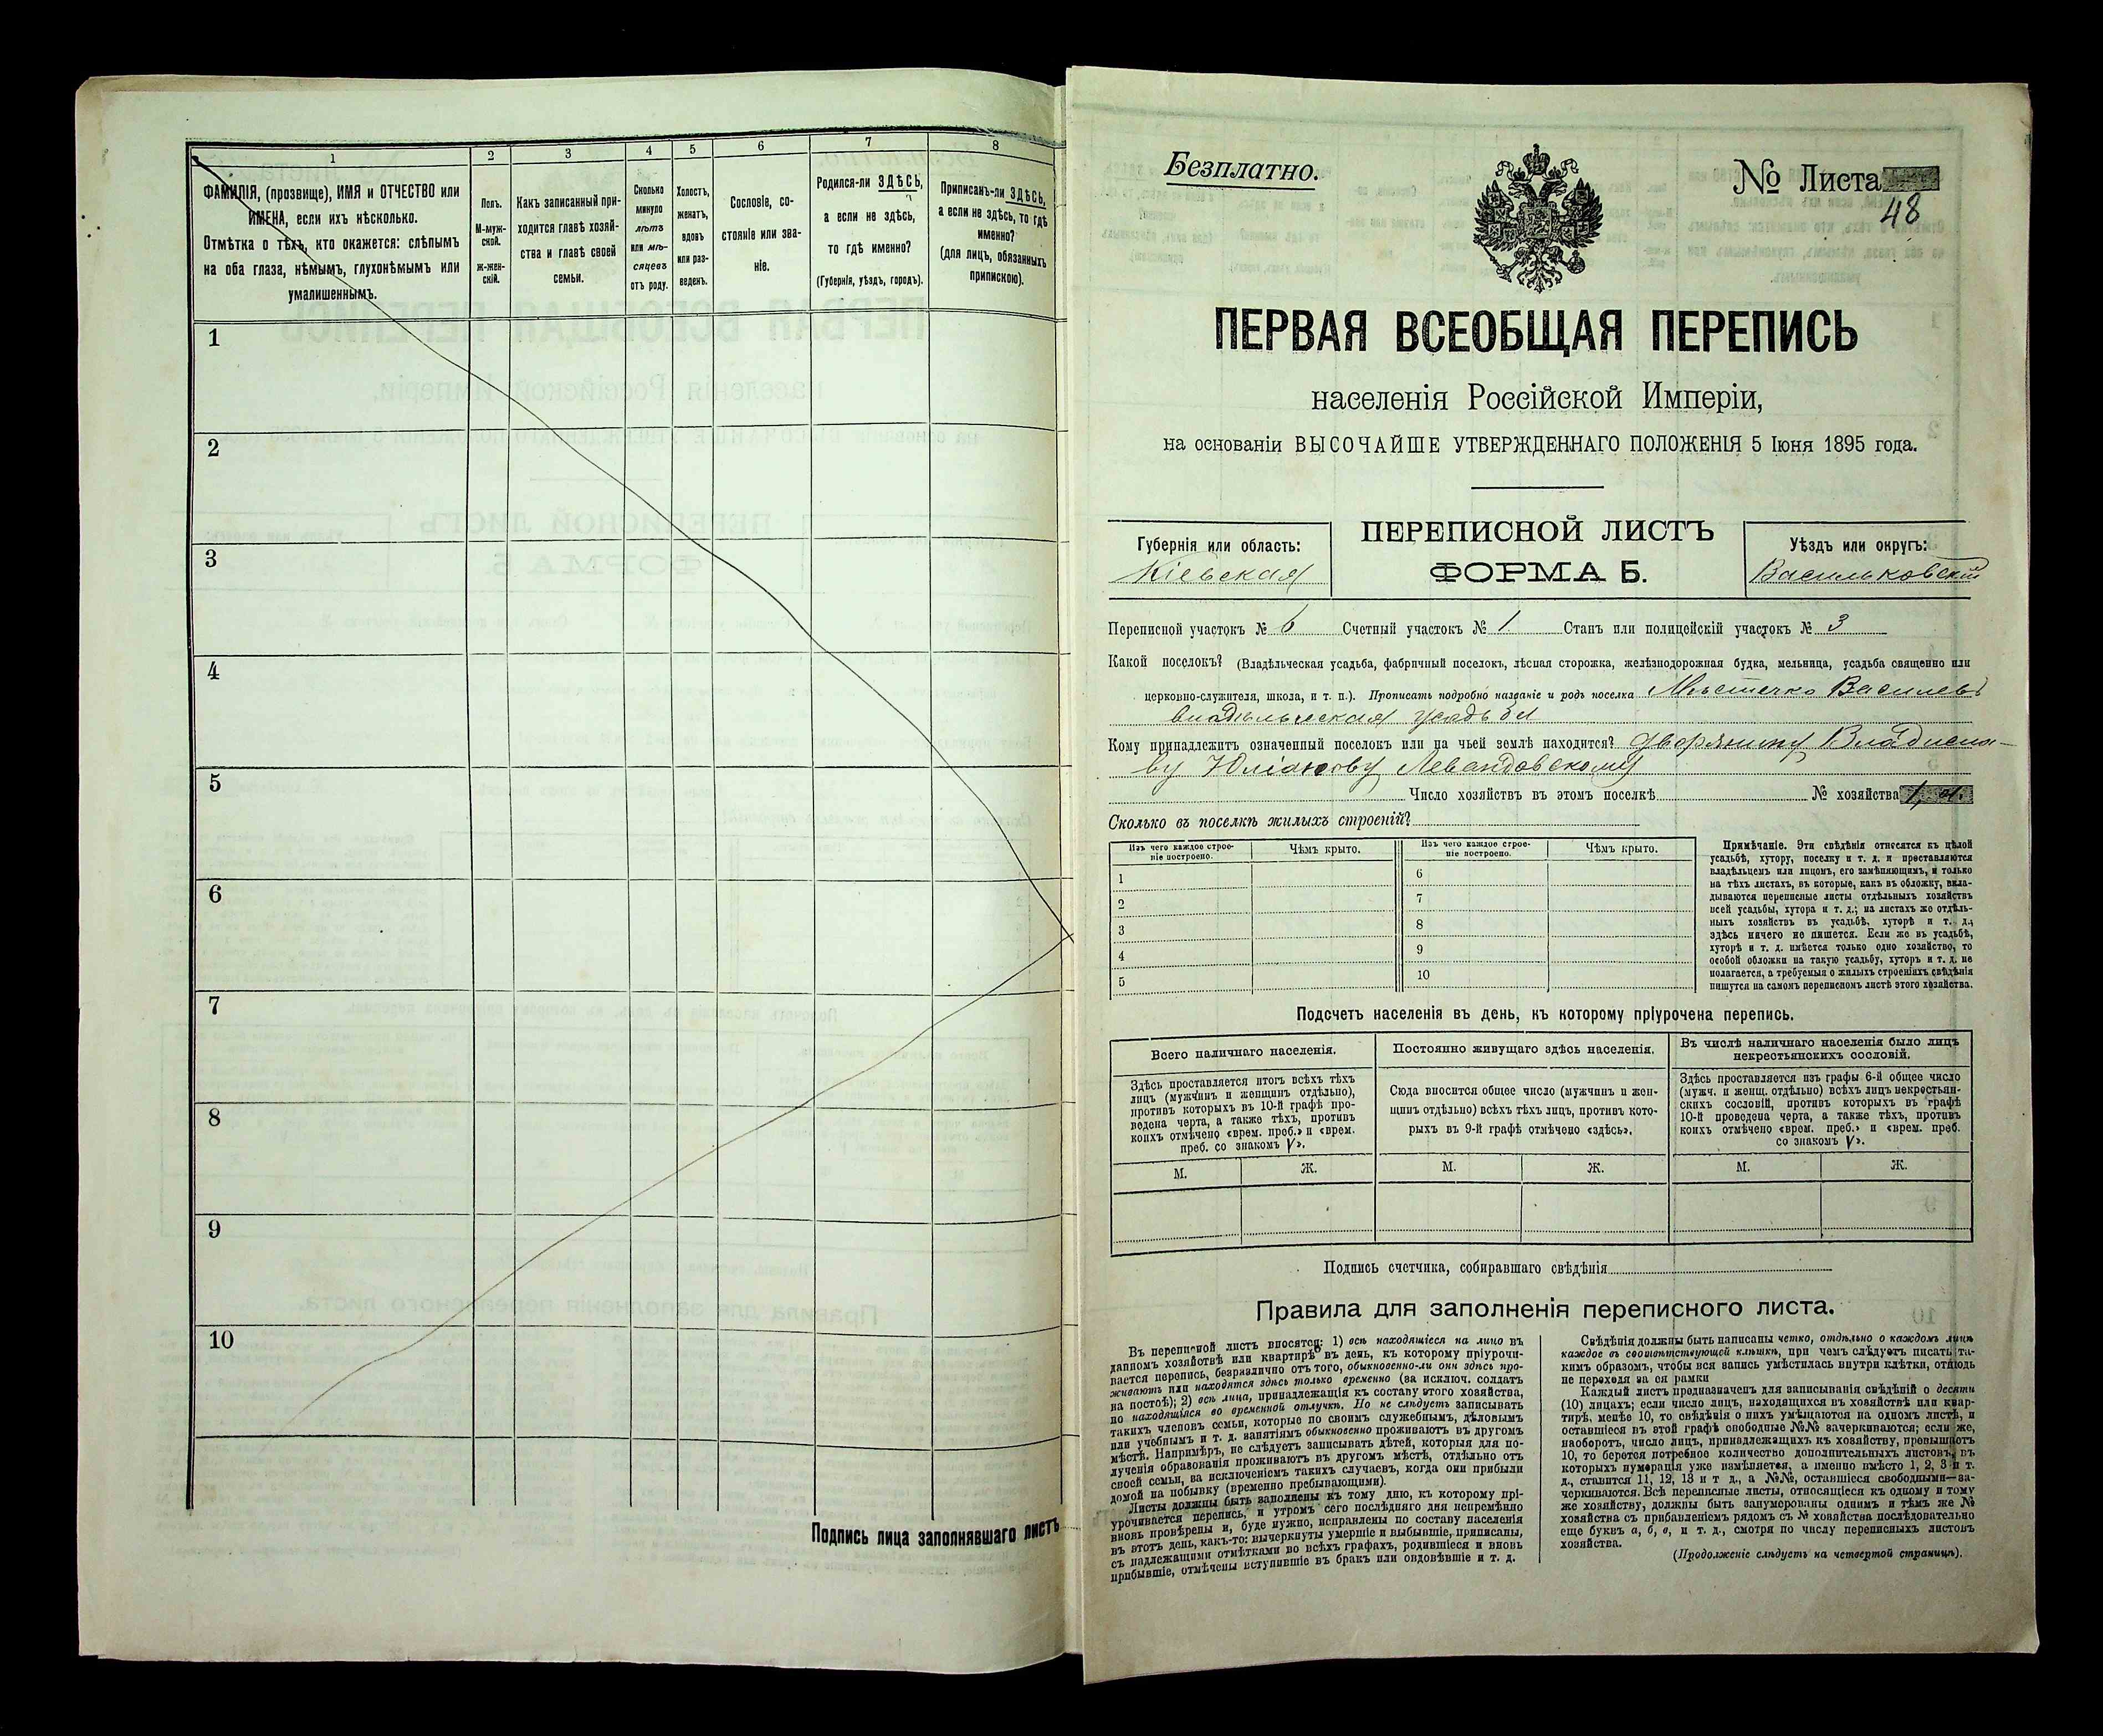 1
2
3
4
5
6
7
8
ФАМИЛІЯ, (прозвище), ИМЯ и ОТЧЕСТВО или
ИМЕНА, если ихъ нѣсколько.
Отмѣтка о тѣхъ, кто окажется: слѣпымъ
на оба глаза, нѣмымъ, глухонѣмымъ или
умалишеннымъ.
Полъ.
М-муж-
ской.
Ж-жен-
скій.
Какъ записанный при-
ходится главѣ хозяй-
ства и главѣ своей
семьи.
Сколько
минуло
лѣтъ
или мѣ-
сяцевъ
отъ роду.
Холостъ,
женатъ,
вдовъ
или раз-
веденъ.
Сословіе, со-
стояніе или зва-
ніе.
Родился-ли ЗДѢСЬ,
а если не здѣсь,
то гдѣ именно?
(Губернія, уѣздъ, городъ).
Приписанъ-ли ЗДѢСЬ,
а если не здѣсь, то гдѣ
именно?
(для лицъ, обязанныхъ
припискою).
1
2
3
4
5
6
7
8
9
10
Подпись лица заполнявшаго листъ
Безплатно.
№ Листа
48
ПЕРВАЯ ВСЕОБЩАЯ ПЕРЕПИСЬ
населенія Россійской Имперіи,
на основаніи ВЫСОЧАЙШЕ УТВЕРЖДЕННАГО ПОЛОЖЕНІЯ 5 Іюня 1895 года.
Губернія или область:
Кіевская
ПЕРЕПИСНОЙ ЛИСТЪ
ФОРМА Б.
Уѣздъ или округъ:
Васильковскій
Переписной участокъ № 6 Счетный участокъ № 1 Станъ или полицейскій участокъ № 3
Какой поселокъ? (Владѣльческая усадьба, фабричный поселокъ, лѣсная сторожка, желѣзнодорожная будка, мельница, усадьба священно или
церковно-служителя, школа, и т. п.). Прописать подробно названіе и родъ поселка Мѣстечко Василевъ
владѣльческая усадьба
Кому принадлежитъ означенный поселокъ или на чьей землѣ находится? дворянину Владисла-
ву Юліанову Левандовскому
Число хозяйствъ въ этомъ поселкѣ № хозяйства 1, а.
Сколько въ поселкѣ жилыхъ строеній?
Изъ чего каждое строе-
ніе построено.
Чѣмъ крыто.
Изъ чего каждое строе-
ніе построено.
Чѣмъ крыто.
1
2
3
4
5
6
7
8
9
10
Примѣчаніе. Эти свѣдѣнія относятся къ цѣлой
усадьбѣ, хутору, поселку и т. д. и проставляются
владѣльцемъ или лицомъ, его замѣняющимъ, и только
на тѣхъ листахъ, въ которые, какъ въ обложку, вкла-
дываются переписные листы отдѣльныхъ хозяйствъ
всей усадьбы, хутора и т. д.; на листахъ же отдѣль-
ныхъ хозяйствъ въ усадьбѣ, хуторѣ и т. д.,
здѣсь ничего не пишется. Если же въ усадьбѣ,
хуторѣ и т. д. имѣется только одно хозяйство, то
особой обложки на такую усадьбу, хуторъ и т. д. не
полагается, а требуемыя о жилыхъ строеніяхъ свѣдѣнія
пишутся на самомъ переписномъ листѣ этого хозяйства.
Подсчетъ населенія въ день, къ которому пріурочена перепись.
Всего наличнаго населенія.
Здѣсь проставляется итогъ всѣхъ тѣхъ
лицъ (мужчинъ и женщинъ отдѣльно),
противъ которыхъ въ 10-й графѣ про-
ведена черта, а также тѣхъ, противъ
коихъ отмѣчено «врем. преб.» и «врем.
преб. со знакомъ V».
Постоянно живущаго здѣсь населенія.
Сюда вносится общее число (мужчинъ и жен-
щинъ отдѣльно) всѣхъ тѣхъ лицъ, противъ кото-
рыхъ въ 9-й графѣ отмѣчено «здѣсь».
Въ числѣ наличнаго населенія было лицъ
некрестьянскихъ сословій.
Здѣсь проставляется изъ графы 6-й общее число
(мужч. и женщ. отдѣльно) всѣхъ лицъ некрестьян-
скихъ сословій, противъ которыхъ въ графѣ
10-й проведена черта, а также тѣхъ, противъ
коихъ отмѣчено «врем. преб.» и «врем. преб.
со знакомъ V».
М.
Ж.
М.
Ж.
М.
Ж.
Подпись счетчика, собиравшаго свѣдѣнія
Правила для заполненія переписного листа.
Въ переписной листъ вносятся: 1) всѣ находящіеся на лицо въ
данномъ хозяйствѣ или квартирѣ въ день, къ которому пріурочи-
вается перепись, безразлично отъ того, обыкновенно-ли они здѣсь про-
живаютъ или находятся здѣсь только временно (за исключ. солдатъ
на постоѣ); 2) всѣ лица, принадлежащія къ составу этого хозяйства,
но находящіяся во временной отлучкѣ. Но не слѣдуетъ записывать
такихъ членовъ семьи, которые по своимъ служебнымъ, дѣловымъ
или учебнымъ и т. д. занятіямъ обыкновенно проживаютъ въ другомъ
мѣстѣ. Напримѣръ, не слѣдуетъ записывать дѣтей, которыя для по-
лученія образованія проживаютъ въ другомъ мѣстѣ, отдѣльно отъ
своей семьи, за исключеніемъ такихъ случаевъ, когда они прибыли
домой на побывку (временно пребывающими).
Листы должны быть заполнены къ тому дню, къ которому прі-
урочивается перепись, и утромъ сего послѣдняго дня непремѣнно
вновь провѣрены и, буде нужно, исправлены по составу населенія
въ этотъ день, какъ-то: вычеркнуты умершіе и выбывшіе, приписаны,
съ надлежащими отмѣтками во всѣхъ графахъ, родившіеся и вновь
прибывшіе, отмѣчены вступившіе въ бракъ или овдовѣвшіе и т. д.
Свѣдѣнія должны быть написаны четко, отдѣльно о каждомъ лицѣ
каждое въ соотвѣтствующей клѣткѣ, при чемъ слѣдуетъ писать та-
кимъ образомъ, чтобы вся запись умѣстилась внутри клѣтки, отнюдь
не переходя за ея рамки
Каждый листъ предназначенъ для записыванія свѣдѣній о десяти
(10) лицахъ; если число лицъ, находящихся въ хозяйствѣ или квар-
тирѣ, менѣе 10, то свѣдѣнія о нихъ умѣщаются на одномъ листѣ, и
оставшіеся въ этой графѣ свободные №№ зачеркиваются; если же,
наоборотъ, число лицъ, принадлежащихъ къ хозяйству, превышаетъ
10, то берется потребное количество дополнительныхъ листовъ, въ
которыхъ нумерація уже измѣняется, а именно вмѣсто 1, 2, 3 и т.
д., ставится 11, 12, 13 и т д., а №№, оставшіеся свободными—за-
черкиваются. Всѣ переписные листы, относящіеся къ одному и тому
же хозяйству, должны быть занумерованы однимъ и тѣмъ же №
хозяйства съ прибавленіемъ рядомъ съ № хозяйства послѣдовательно
еще буквъ а, б, в, и т. д., смотря по числу переписныхъ листовъ
хозяйства.
(Продолженіе слѣдуетъ на четвертой страницѣ).